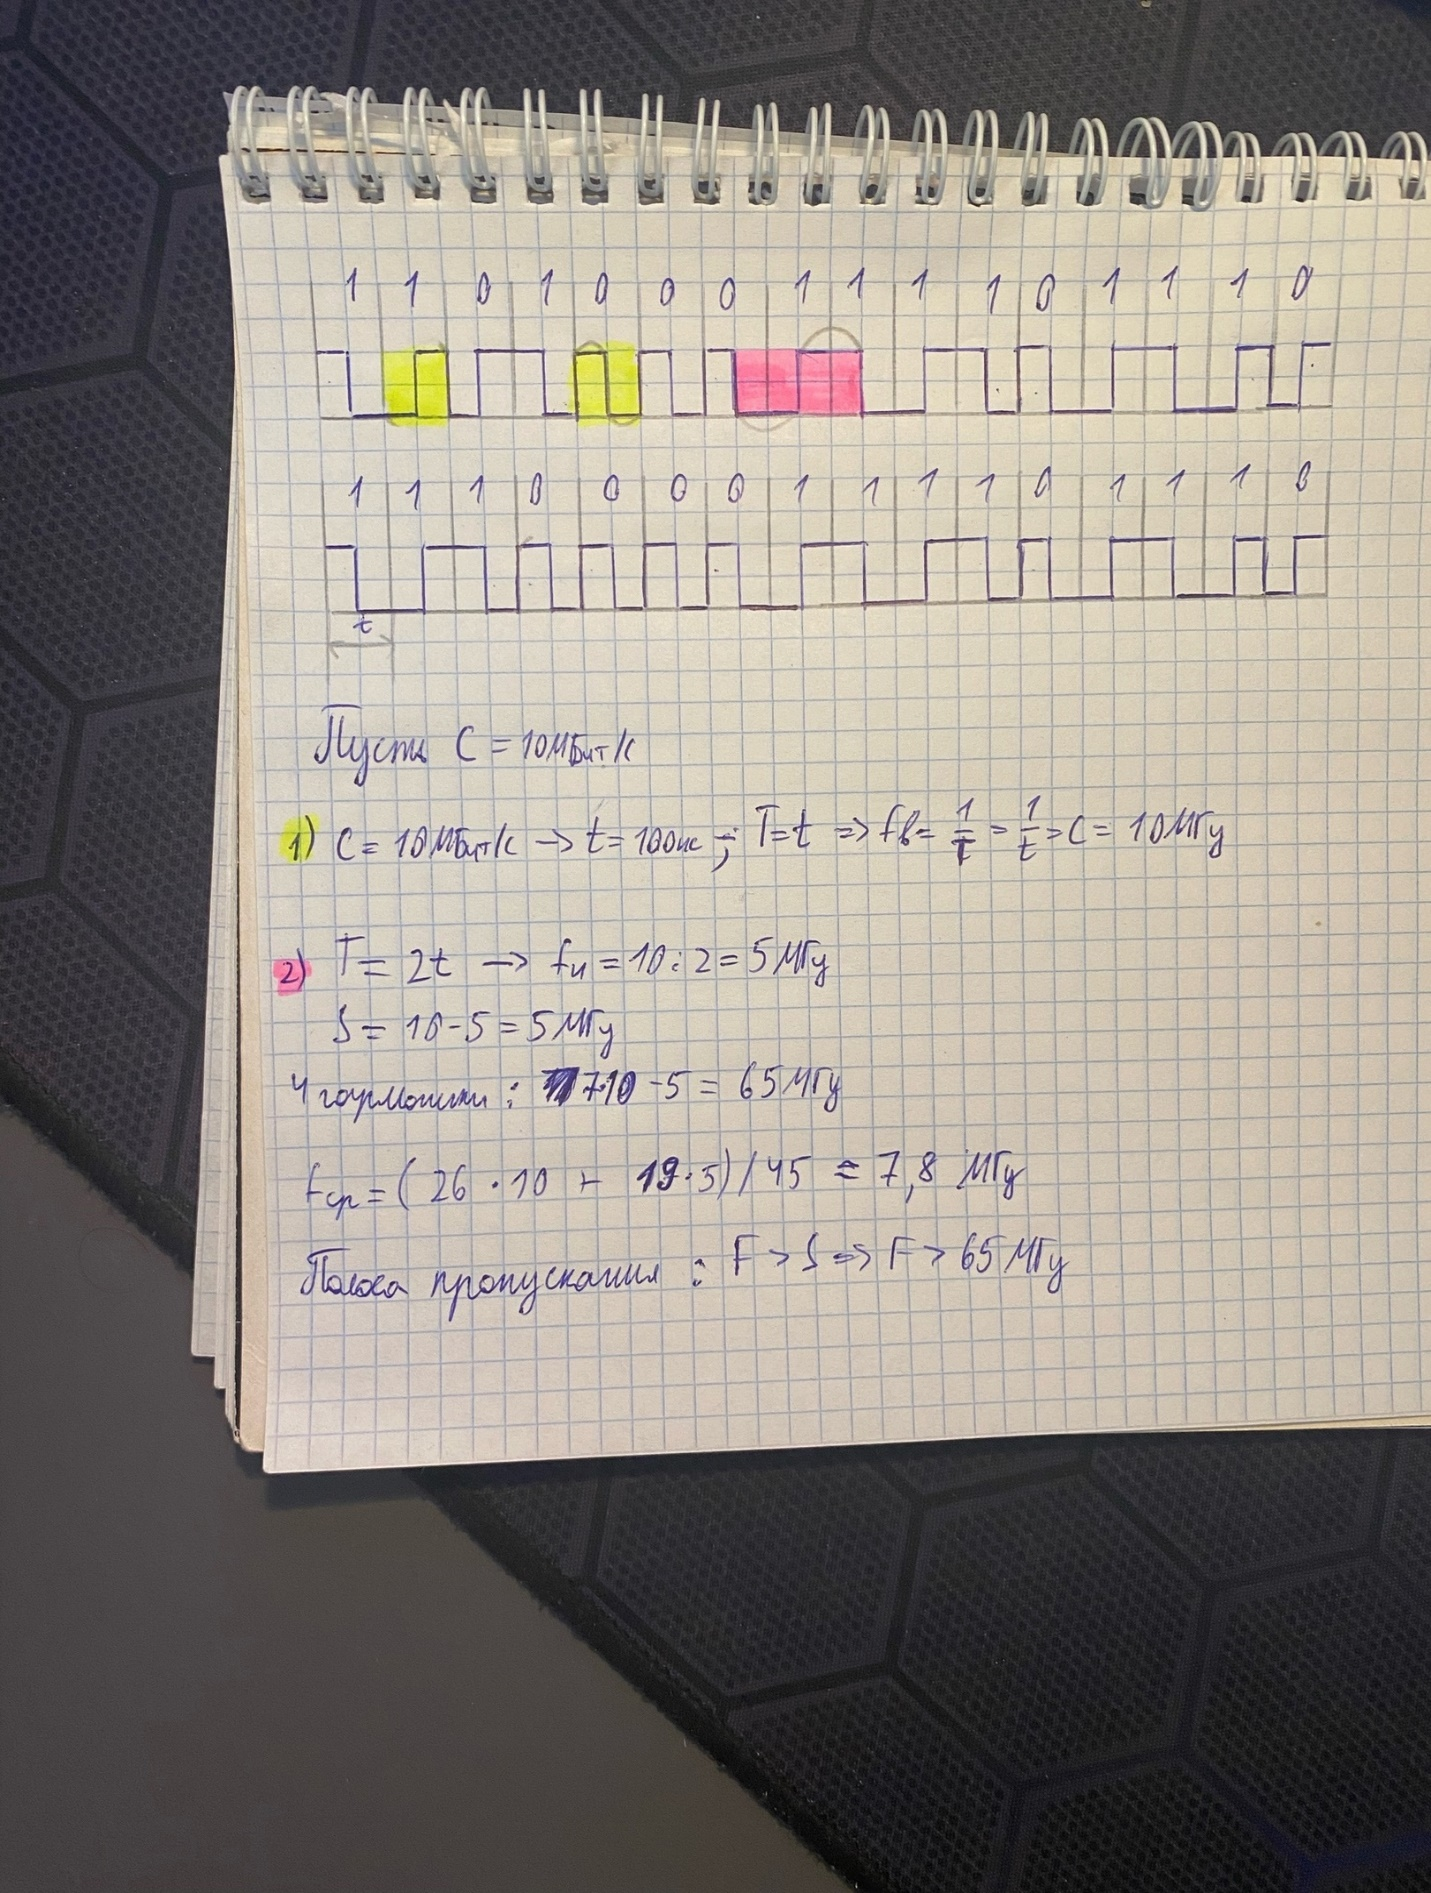 1 1 0 1 0 0 0 1 1 1 1 0 1 1 1 0
1 1 1 0 0 0 0 1 1 1 1 0 1 1 1 0
t
Пусть C = 10МБит/с
1) C = 10МБит/с → t = 100нс ; T=t => fв = 1/T = 1/t = C = 10МГц
2) T = 2t → fн = 10:2 = 5МГц
S = 10-5 = 5МГц
4 гармоники : 7·10 - 5 = 65МГц
fср = ( 26 · 10 + 19·5)/45 = 7,8 МГц
Полоса пропускания : F > S => F > 65МГц